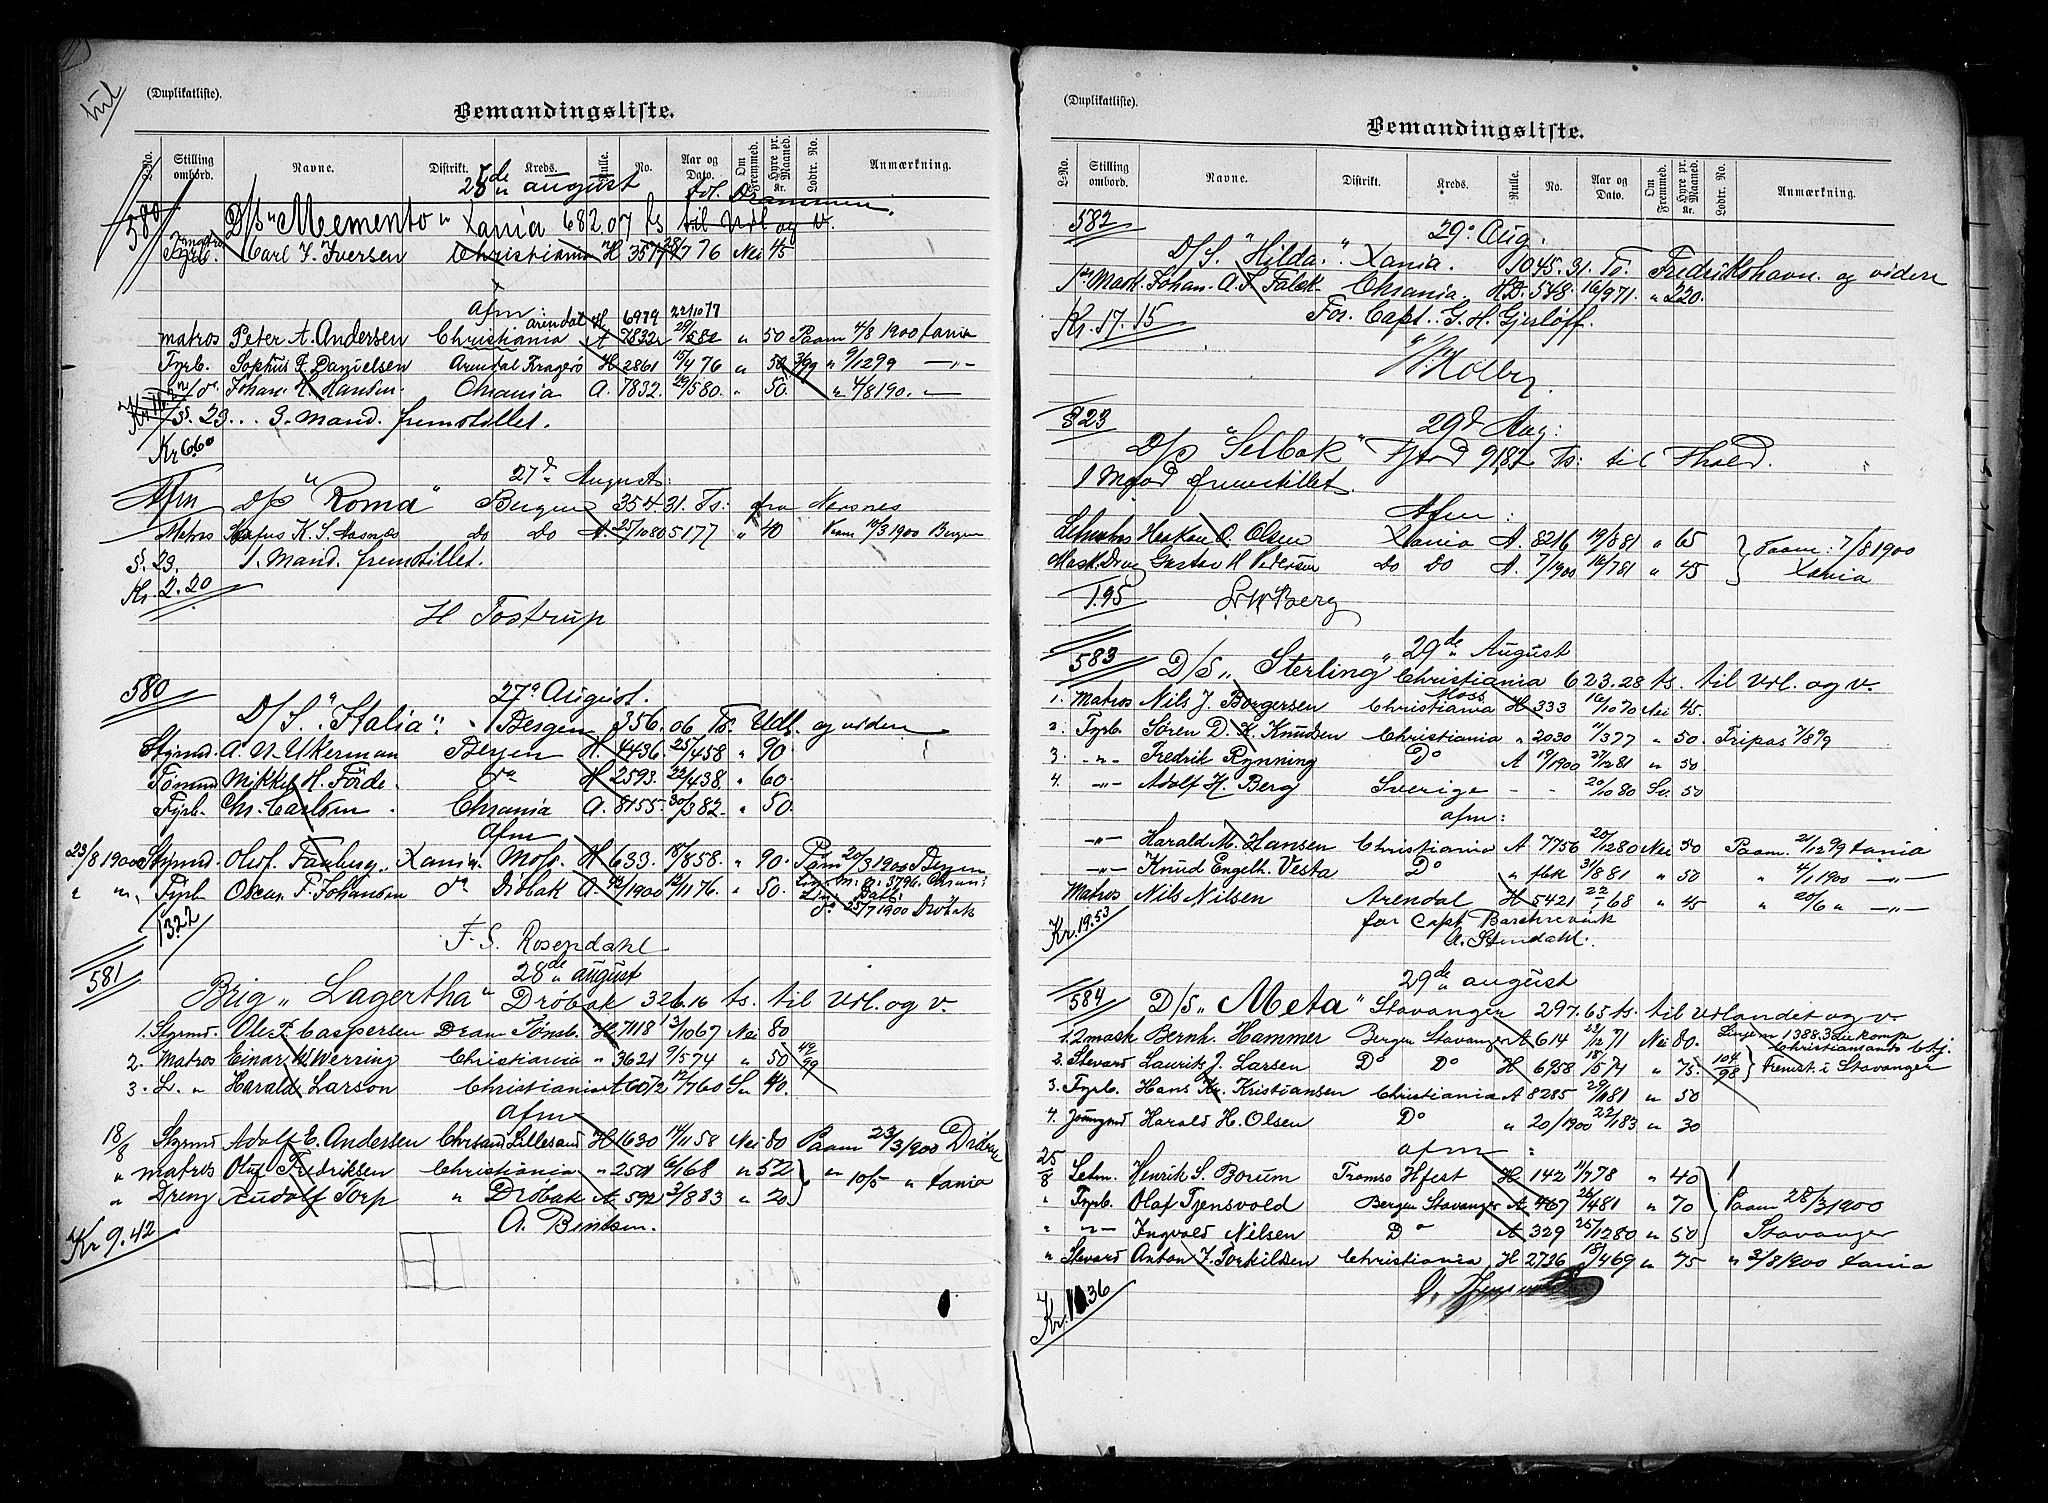 (Duplikatliste).
Bemandingsliste.
L-No. Stilling ombord. Navne. Distrikt. Kreds. Rulle. No. Aar og Dato. Om Fremmed. Hyre pr. Maaned. Kr. Lodtr. No. Anmærkning.
28de august
580 D/S "Memento" Xania 682.07 ts til Udl og v.
Carl J. Iversen Christiania H 3577 28/7 76 Nei 45
afm:
Arendal H 6979 22/10 77
Matros Peter A. Andersen Christiania A 7832 29/5 82 " 50 Paam 4/8 1900 Xania
Fyrb. Sophus F. Danielsen Arendal Kragerø H 2861 15/4 76 " 50 " 9/12 99 —"—
Johan H. Hansen Chrania A. 7832 29/5 80. " 50. " 4/8 190. —
§. 23... 3. Mand. fremstillet.
Kr 6.60
27d August:
Afm D/S "Roma" Bergen 354.31. Ts: fra Næsnes
Matros K. S. Aasnæs do do A. 25/10 80 5177 " 40 Paam 10/3 1900 Bergen
§. 23. 1. Mand. fremstillet.
Kr. 2.20
H Tostrup
580 27d August.
D/S. "Italia". Bergen 356.06 Ts. Udl. og viden
Styrmd. A. N. Ukerman Bergen H. 4436. 25/4 58 " 90.
Tømmd Mikkel H. Förde do H 2593. 22/4 38. " 60.
Fyrb. Chr. Carlsen. Chrania A. 8155. 30/3 82. " 50.
afm
23/8 1900 Styrmd. Oluf. Fauberg. Xania. Moss. H 633. 18/8 58. " 90. Paam 20/3 1900 Bergen
" " Fyrb Oscar F. Johansen do Drøbak A /1900 12/11 76. " 50.
do 25/7 1900 Drøbak
13.22
F. S. Rosendahl
581 28de august
Brig "Lagertha" Drøbak 326.16 ts. til Udl. og v.
1. Styrmd. Ole F. Caspersen Dram Tønsb. H 7118 13/10 67 Nei 80
2. Matros Einar W. Werring Christiania " 3621 9/5 74 " 50 49/99
3. L. " Harald Larson Christiania A 6072 12/7 60 Sv 40.
afm
18/8 Styrmd Adolf E. Andersen Chrsand Lillesand H 1630 14/11 58 Nei 80 Paam 23/3/900 Drøbak
" matros Oluf Fredriksen Christiania " 2501 6/1 68 " 52 " 10/5 " Xania
" Dreng Rudolf Torp " Drøbak A. 592 3/8 83 " 20
A. Bentsen.
Kr 9.42
(Duplikatliste).
Bemandingsliste.
L-No. Stilling ombord. Navne. Distrikt. Kreds. Rulle. No. Aar og Dato. Om Fremmed. Hyre pr. Maaned. Kr. Lodtr. No. Anmærkning.
582 29d Aug.
D/S. "Hilda." Xania. 1045.31. Ts. Fredrikshavn. og videre
1ste Mask. Johan. A. F. Falck. Chrania. H.D. 548. 16/9 71. " 220.
Kr. 17.15 For. Capt. G. H. Gjerløff.
Holby.
823 29d Aug:
D/S "Selbak" Fstad 9187 Ts: til Fhald.
1 Mand fremstillet.
Afm:
Haakon O. Olsen Xania A. 8216 19/8 81 " 65 Paam: 7/8 1900
Mask.Dreng Gustav H Pedersen do do A. 7/1900 16/7 81 " 45 Xania
1.95 Berg
583 29de August
D/S "Sterling" Christiania 623.28 ts. til Udl. og v.
1. Matros Nils J. Borgersen Christiania Moss H 333 16/10 70 Nei 45.
2. Fyrb. Søren D. K. Knudsen Christiania " 2030 11/3 77 " 50. Fripas 7/8 99
3. —"— Fredrik Rynning Do A 19/1900 27/12 81 " 50
4. —"— Adolf H. Berg Sverige - - 20/10 80 Sv. 50
afm:
—"— Harald M. Hansen Christiania A 7756 20/12 80 Nei 50 Paam. 21/12 99 Xania
—"— Knud Engelh. Vesta Do " fbk 31/8 81 " 50 " 4/1 1900 —"—
Matros Nils Nilsen Arendal H 5421 22/1 68 " 45 " 20/6 " —"—
Kr. 19.53 for Capt Barchrevink
A. Stendahl.
29de august
584 D/S "Meta" Stavanger 297.65 ts. til Udlandet og v.
1. 2mask Bernh. Hammer Bergen Stavanger A 614 22/12 71 Nei 80.
2. Steward Laurits J. Larsen Do Do H 6958 18/5 74 " 75. 104/98 Fremst. i Stavanger
3. Fyrb. Hans Kr. Kristiansen Christiania A 8285 29/11 81 " 50
4. Jungmd Harald H. Olsen Do " 20/1900 22/1 83 " 30
afm:
25/8 Letm. Henrik S. Borum Tromsø Hfest H 142 11/7 78 " 40
" Fyrb. Olaf Tjensvold Bergen Stavanger A 467 26/4 81 " 70 Paam 28/3 1900
" —"— Ingvald Nilsen Do A 329 25/12 80 " 50 Stavanger
" Steward Anton J. Torkildsen Christiania H 2736 18/4 69 " 75 " 3/8 1900 Xania